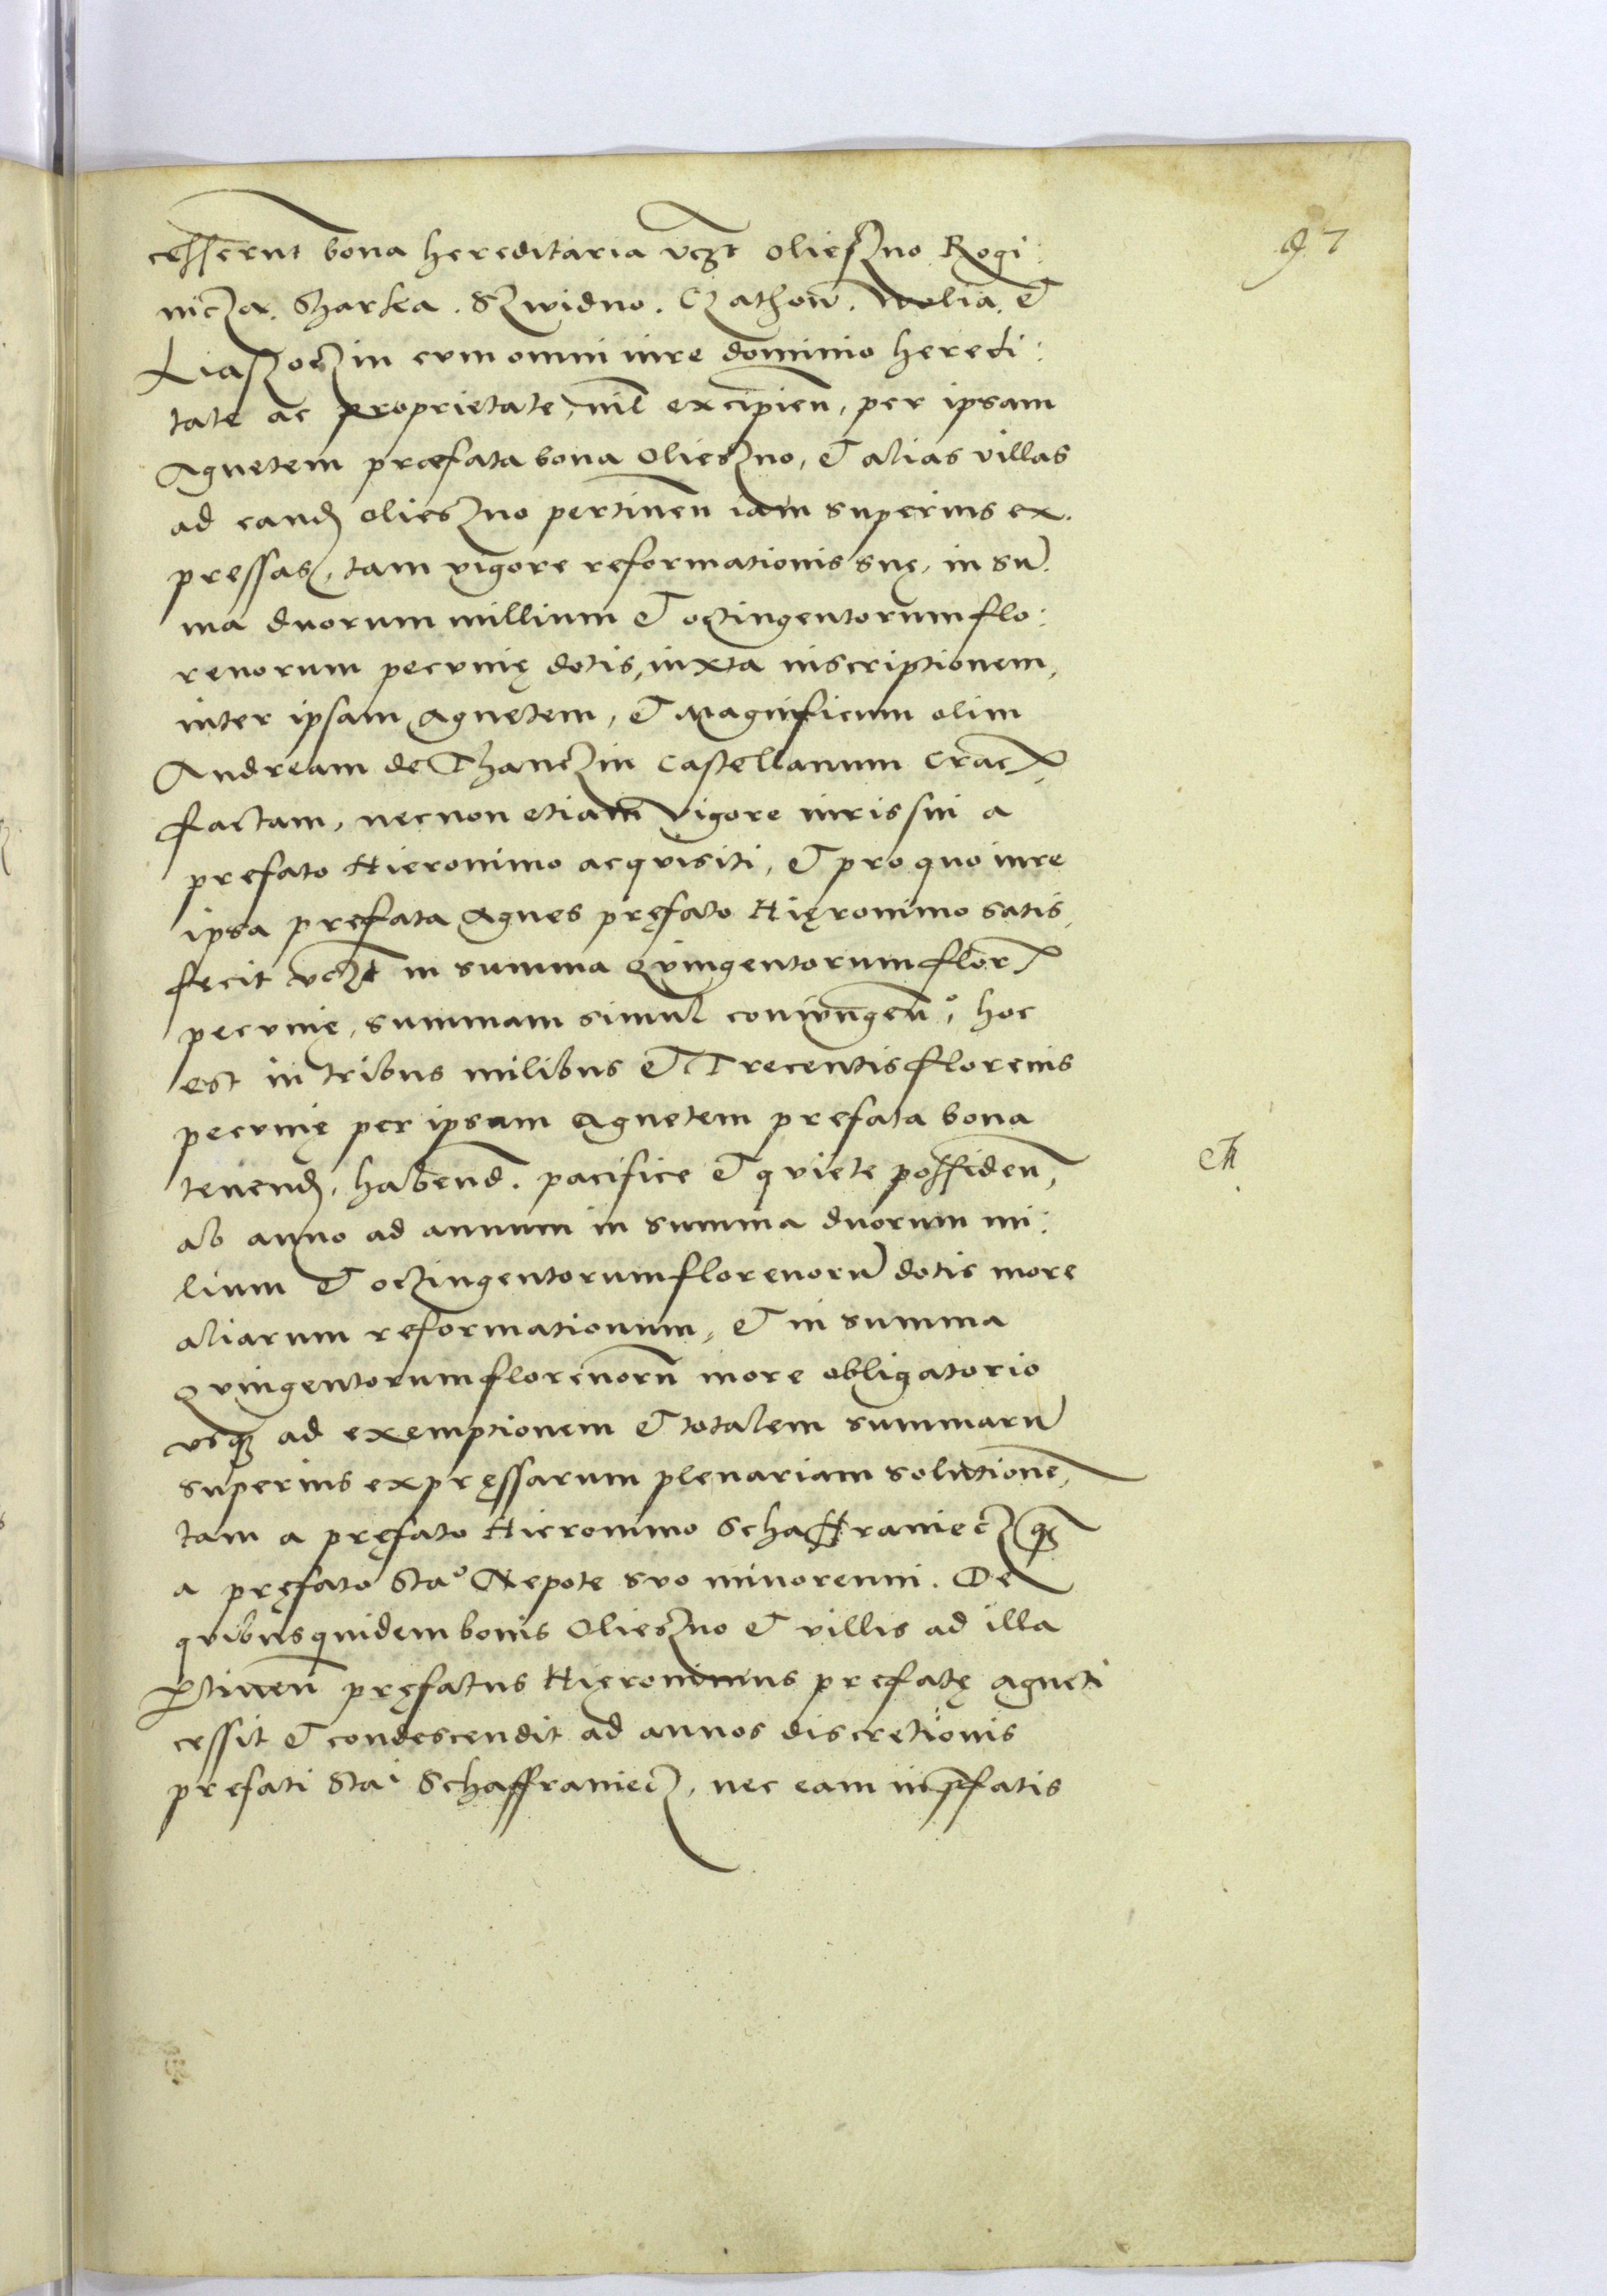 97
cesserunt bona hereditaria vczt Olieszno Rogi:
nicza. Skarka. Szwidno. Czathow. Wolia. et
Liaszoczin cum omni iure dominio heredi:
tate ac proprietate, nil excipien, per ipsam
Agnetem præfata bona Olieszno, et alias villas
ad eand Olieszno pertinen iam superius ex.
pressas, tam vigore reformationis suę, in su.
ma duorum millium et octingentorum flo:
renorum pecunię dotis, iuxta inscriptionem,
inter ipsam Agnetem, et Magnificum olim
Andream de Thanczin Castellanum Crac
factam, necnon etiam vigore iuris sui a
prefato Hieronimo acquisiti, et pro quo iure
ipsa prefata Agnes pręfato Hięronimo satis,
fecit vczt in summa Quingentorum flor
pecunię, summam simul coniungen, hoc
est in tribus milibus et Trecentis florenis
pecunię per ipsam Agnetem prefata bona
tenend, habend. pacifice et quiete possiden,
ab anno ad annum in summa duorum mi:
lium et octingentorum florenoru dotis more
aliarum reformationum, et in summa
Quingentorum florenoru more obligatorio
vsq ad exemptionem et totalem summaru
superius expręssarum plenariam solutione,
tam a pręfato Hieronimo Schaffraniecz q
a pręfato Stao Nepote suo minorenni. De
quibusquidem bonis Olieszno et villis ad illa
ptinen pręfatus Hięronimus prefatę Agneti
cessit et condescendit ad annos discretionis
prefati Stai Schaffraniecz, nec eam in pfatis